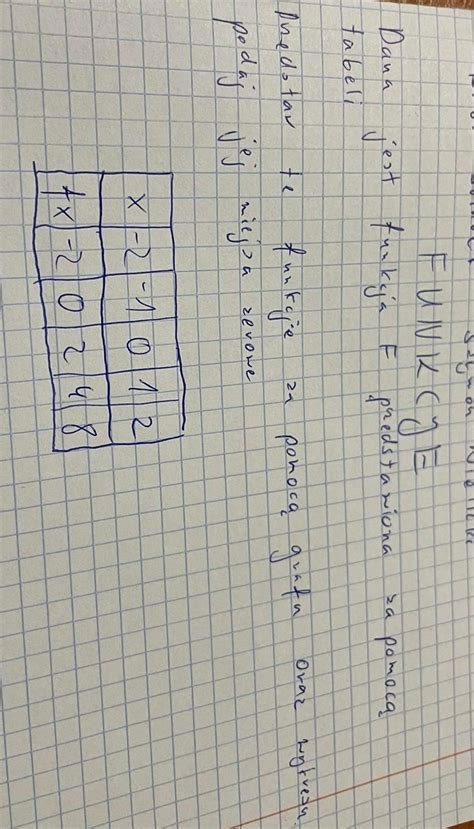 FUNKCYE
Dana jest funkcja F przedstawiona za pomocą
tabeli
Przedstaw te funkcje za pomocą grafu oraz wykresu.
podaj jej miejsca zerowe
x -2 -1 0 1 2
fx -2 0 2 4 8